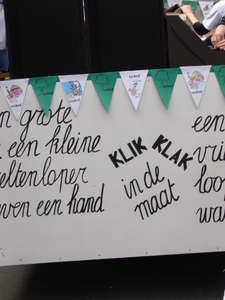 n grote
een kleine
eltenloper
ven een hand
KLIK KLAK
in de
maat
een
vri
loo
wa